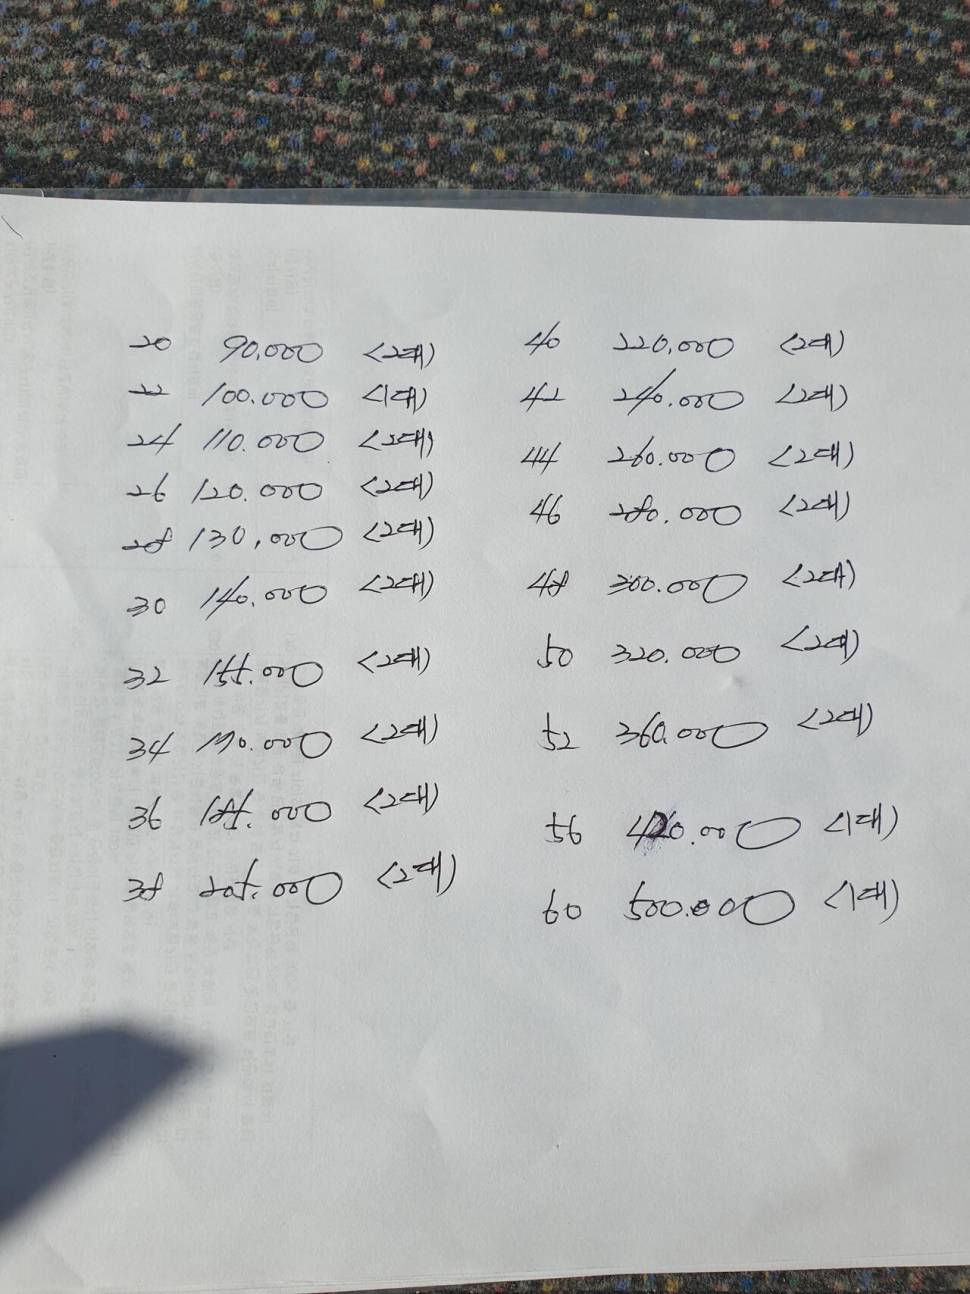 20 90,000 <2대)
22 100.000 <1대)
24 110.000 <2대)
26 120.000 <2대)
28 130,000 <2대)
30 140.000 <2대)
32 155.000 <2대)
34 170.000 <2대)
36 185.000 <2대)
38 205.000 <2대)
40 220,000 <2대)
42 240.000 <2대)
44 260.000 <2대)
46 280.000 <2대)
48 300.000 <2대)
50 320.000 <2대)
52 360.000 <2대)
56 420.000 <1대)
60 500.000 <1대)